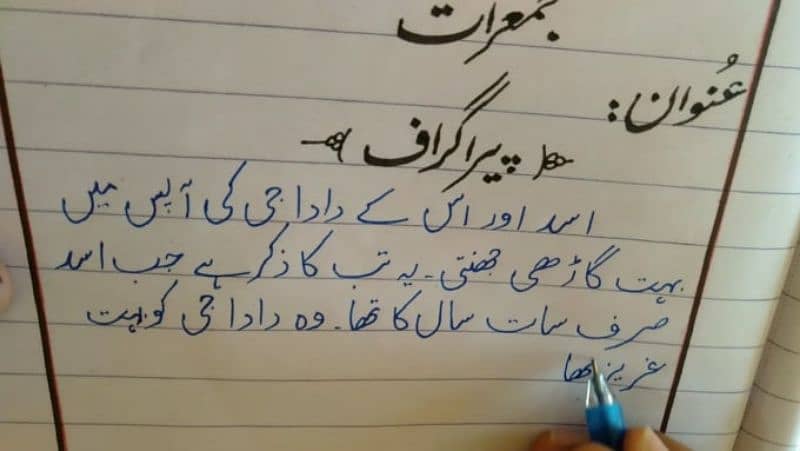 جمعرات
عُنوان:
پیراگراف
اسد اور اس کے دادا جی کی آپس میں
بہت گاڑھی چھنتی۔ یہ تب کا ذکر ہے جب اسد
صرف سات سال کا تھا۔ وہ دادا جی کو بہت
عزیز تھا